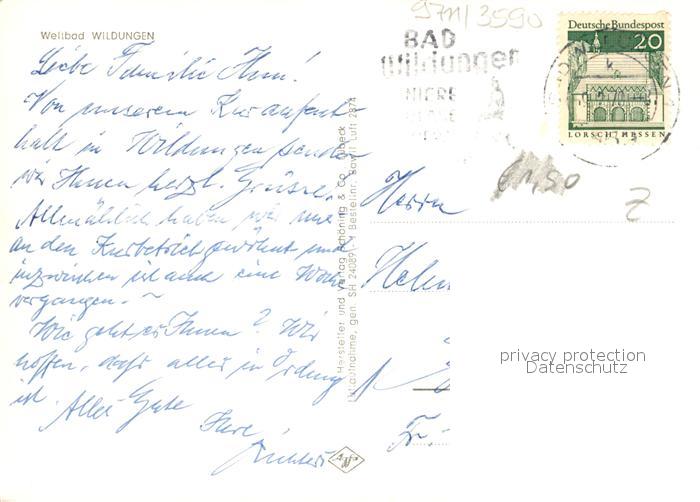 Weltbad WILDUNGEN
Liebe Familie
Von unserem Kuraufent-
halt in Wildungen senden
wir Ihnen herzl. Grüsse.
Allmählich haben wir uns
an den Kurbetrieb gewöhnt und
inzwischen ist auch eine Woche
vergangen. ~
Wie geht es Ihnen? Wir
hoffen, dass alles in Ordnung
ist. Alles Gute
Ihre
Hersteller und Verlag Schöning & Co., Lübeck
Luftaufnahme, gen. SH 24089
Bestellnr. Bawil Luft 2874
9711/3590
BAD
Wildungen
NIERE
Deutsche Bundespost
20
LORSCH/HESSEN
61,50
Z
Herrn
privacy protection
Datenschutz